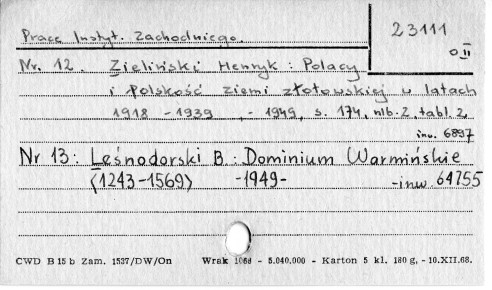 Prace Instyt. Zachodniego.
23111
II
Nr. 12. Zieliński Henryk : Polacy
i Polskość ziemi złotowskiej w latach
1918 - 1939, - 1949, s. 174, nlb. 2, tabl. 2,
inw. 6897
Nr 13: Leśnodorski B. : Dominium Warmińskie
(1243-1569) -1949- -inw. 64755
CWD B 15 b Zam. 1537/DW/On Wrak - 5.040.000 - Karton 5 kl. 180 g, - 10.XII.68.